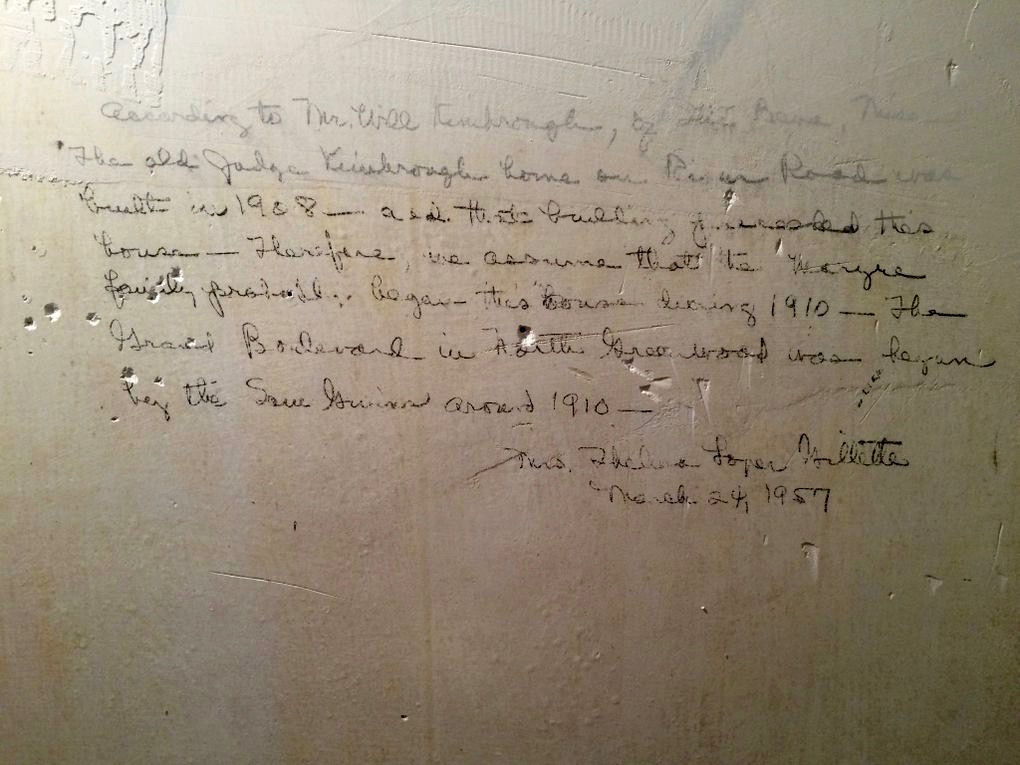 According to Mr. Will Kimbrough, of Itta Bena, Miss—
The old Judge Kimbrough home on River Road was
built in 1908 — and that building preceded this
house — Therefore, we assume that the
family probably began this house during 1910 — The
Grand Boulevard in North Greenwood was begun
by the Sam around 1910 —
Mrs. Thelma Loper Gillette
March 24, 1957